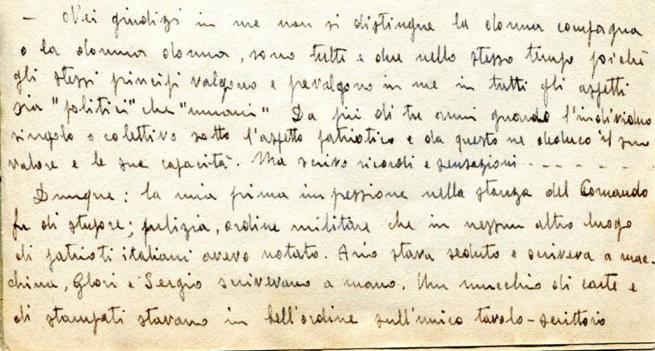 - Nei giudizi in me non si distingue la donna compagna
o la donna donna, sono tutte e due nello stesso tempo poichè
gli stessi principi valgono e prevalgono in me in tutti gli aspetti
sia "politici" che "umani". Da più di tre anni guardo l'individuo
singolo o colettivo sotto l'aspetto patriotico e da questo ne deduco il suo
valore e le sue capacità. Ma scrivo ricordi e sensazioni - - - - - - -
Dunque: la mia prima impressione nella stanza del Comando
fu di stupore; pulizia, ordine militare che in nessun altro luogo
di patrioti italiani avevo notato. Ario stava seduto e scriveva a mac-
china, Glori e Sergio scrivevano a mano. Un mucchio di carte e
di stampati stavano in bell'ordine sull'unico tavolo-scrittorio